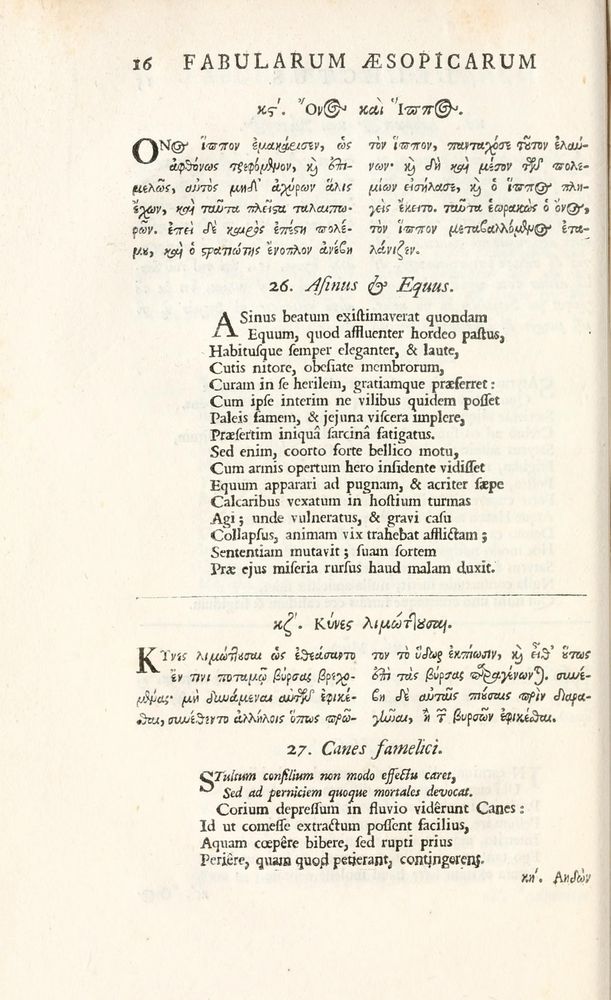 16 FABULARUM ÆSOPICARUM
κϛʹ. Ὄνος καὶ Ἵππος.
ὌΝος ἵππον ἐμακάρισεν, ὡς
ἀφθόνως τρεφόμενον, καὶ ἐπι-
μελῶς, αὐτὸς μηδ᾽ ἀχύρων ἅλις
ἔχων, καὶ ταῦτα πλεῖστα ταλαιπω-
ρῶν. ἐπεὶ δὲ καιρὸς ἐπέστη πολέ-
μου, καὶ ὁ στρατιώτης ἔνοπλον ἀνέβη
τὸν ἵππον, πανταχόσε τοῦτον ἐλαύ-
νων· καὶ δὴ καὶ μέσον τῶν πολε-
μίων εἰσήλασε, καὶ ὁ ἵππος πλη-
γεὶς ἔκειτο. ταῦτα ἑωρακὼς ὁ ὄνος,
τὸν ἵππον μεταβαλλόμενος ἐτα-
λάνιζεν.
26. Asinus & Equus.
ASinus beatum existimaverat quondam
Equum, quod affluenter hordeo pastus,
Habitusque semper eleganter, & laute,
Cutis nitore, obesitate membrorum,
Curam in se herilem, gratiamque præferret:
Cum ipse interim ne vilibus quidem posset
Paleis famem, & jejuna viscera implere,
Præsertim iniquâ sarcinâ fatigatus.
Sed enim, coorto forte bellico motu,
Cum armis opertum hero insidente vidisset
Equum apparari ad pugnam, & acriter sæpe
Calcaribus vexatum in hostium turmas
Agi; unde vulneratus, & gravi casu
Collapsus, animam vix trahebat afflictam;
Sententiam mutavit; suam sortem
Præ ejus miseria rursus haud malam duxit.
κζʹ. Κύνες λιμώττουσαι.
ΚΥνες λιμώττουσαι ὡς ἐθεάσαντο
ἔν τινι ποταμῷ βύρσας βρεχο-
μένας· μὴ δυνάμεναι αὐτῶν ἐφικέ-
σθαι, συνέθεντο ἀλλήλοις ὅπως πρῶ-
τον τὸ ὕδωρ ἐκπίωσιν, καὶ εἶθ᾽ οὕτως
ἐπὶ τὰς βύρσας παραγένωνται. συνέ-
βη δὲ αὐταῖς πιούσαις πρὶν διαρα-
γῶναι, ἢ τῶν βυρσῶν ἐφικέσθαι.
27. Canes famelici.
STultum consilium non modo effectu caret,
Sed ad perniciem quoque mortales devocat.
Corium depressum in fluvio vidêrunt Canes:
Id ut comesse extractum possent facilius,
Aquam cœpêre bibere, sed rupti prius
Periêre, quam quod petierant, contingerent.
κηʹ. Ἀηδὼν